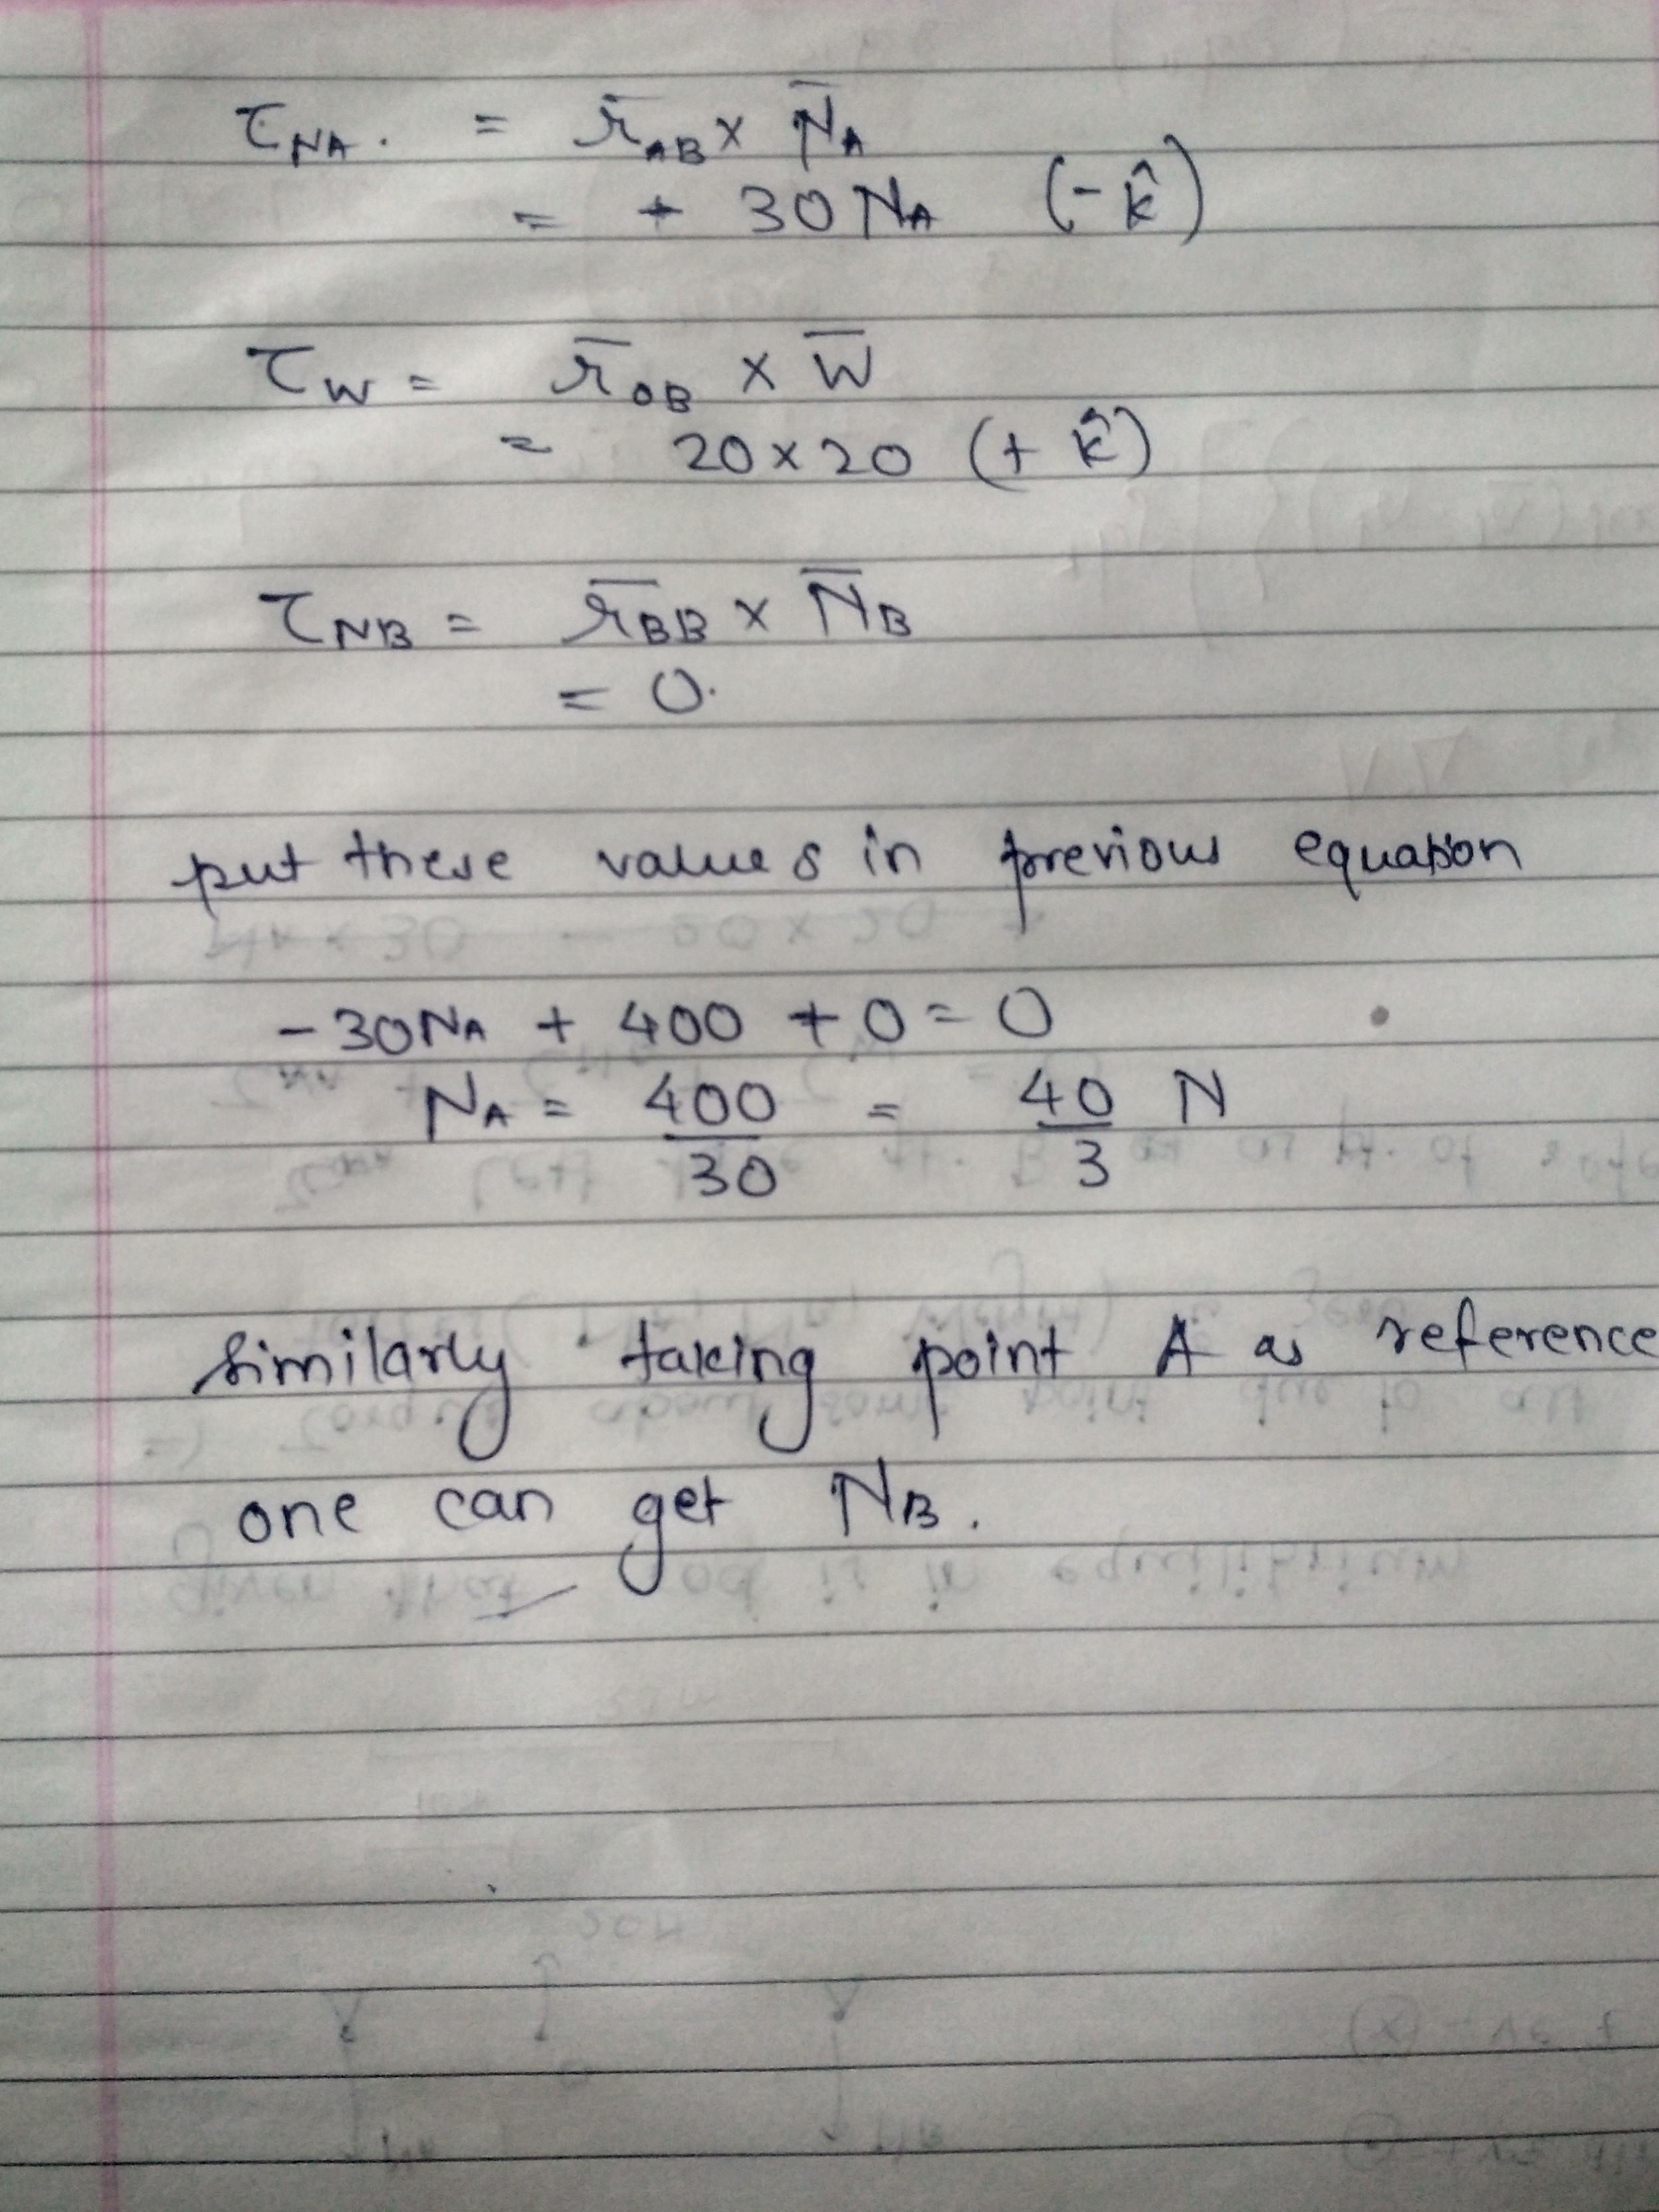 τ_NA. = r̄_AB × N̄_A
= + 30 N_A (-k̂)
τ_W = r̄_OB × W̄
= 20×20 (+ k̂)
τ_NB = r̄_BB × N̄_B
= 0.
put these values in previous equation
-30N_A + 400 + 0 = 0
N_A = 400/30 = 40/3 N
Similarly taking point A as reference
one can get N_B.